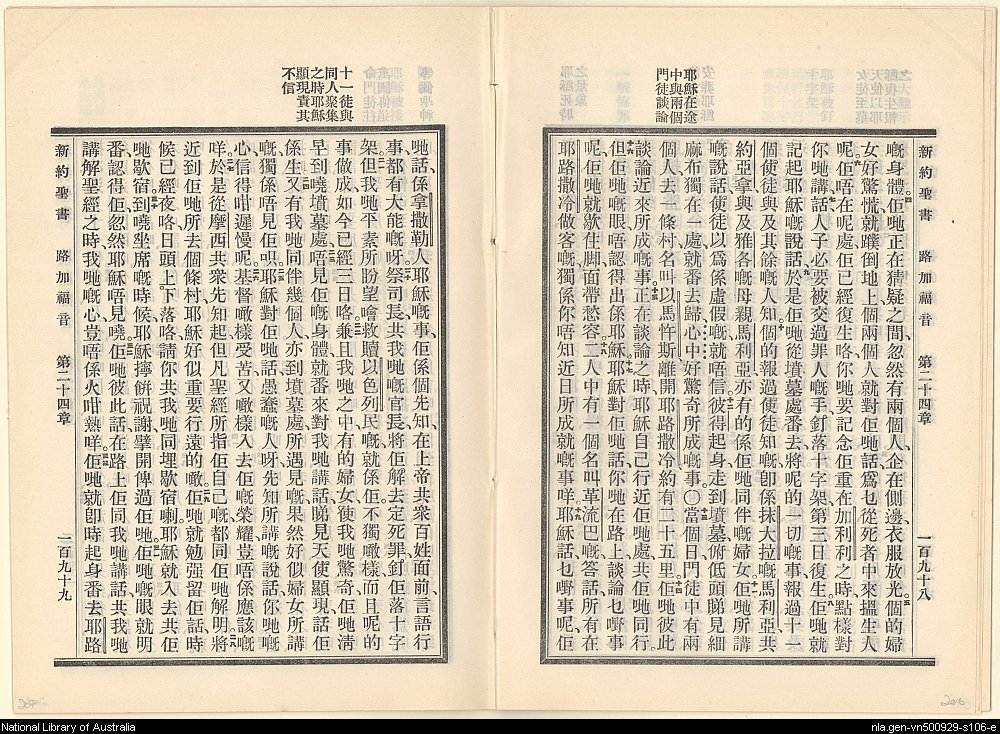 新約聖書 路加福音 第二十四章 一百九十八
嘅身體佢哋正在猜疑之間忽然有兩個人企在側邊衣服放光個的婦
女好驚慌就蹼倒地上個兩個人就對佢哋話爲乜從死者中來搵生人
呢佢唔在呢處佢已經復生咯你哋要記念佢重在加利利之時點樣對
你哋講話人子必要被交過罪人嘅手釘落十字架第三日復生佢哋就
記起耶穌嘅說話於是佢哋從墳墓處番去將呢的一切嘅事報過十一
個使徒與及其餘嘅人知個的報過使徒知嘅卽係抹大拉嘅馬利亞共
約亞拿與及雅各嘅母親馬利亞亦有的係佢哋同伴嘅婦女佢哋所講
嘅說話使徒以爲係虛假嘅就唔信彼得起身走到墳墓俯低頭睇見細
麻布獨在一處就番去歸心中好驚奇所成嘅事〇當個日門徒中有兩
個人去一條村名叫以馬忤斯離開耶路撒冷約有二十五里佢哋彼此
談論近來所成嘅事正在談論之時耶穌自己行近佢哋處共佢哋同行
但佢哋嘅眼唔認得出係耶穌耶穌對佢哋話你哋在路上談論乜嘢事
呢佢哋就歇住脚面帶愁容二人中有一個名叫革流巴嘅答話所有在
耶路撒冷做客嘅獨係你唔知近日所成就嘅事咩耶穌話乜嘢事呢佢
耶穌在途
中與兩個
門徒談論
哋話係拿撒勒人耶穌嘅事佢係個先知在上帝共衆百姓面前言語行
事都有大能嘅呀祭司長共我哋嘅官長將佢解去定死罪釘佢落十字
架但我哋平素所盼望噲救贖以色列民嘅就係佢不獨噉樣而且呢的
事做成如今已經三日咯兼且我哋之中有的婦女使我哋驚奇佢哋淸
早到嘵墳墓處唔見佢嘅身體就番來對我哋講話睇見天使顯現話佢
係生又有我哋同伴幾個人亦到墳墓處所遇見嘅果然好似婦女所講
嘅獨係唔見佢呮耶穌對佢哋話愚蠢嘅人呀先知所講嘅說話你哋嘅
心信得咁遲慢呢基督噉樣受苦又噉樣入去佢嘅榮耀豈唔係應該嘅
咩於是從摩西共衆先知起但凡聖經所指佢自己嘅都同佢哋解明將
近到佢哋所去個條村耶穌好似重要行遠的噉佢哋就勉强留佢話時
候已經夜咯日頭上下落咯請你共我哋同埋歇宿喇耶穌就入去共佢
哋歇宿到嘵坐席嘅時候耶穌擰餠祝謝擘開俾過佢哋佢哋嘅眼就明
番認得佢忽然耶穌唔見嘵佢哋彼此話在路上佢同我哋講話共我哋
講解聖經之時我哋嘅心豈唔係火咁熱咩佢哋就卽時起身番去耶路
新約聖書 路加福音 第二十四章 一百九十九
十一徒與
同人聚集
之時耶穌
顯現責其
不信
National Library of Australia
nla.gen-vn500929-s106-e